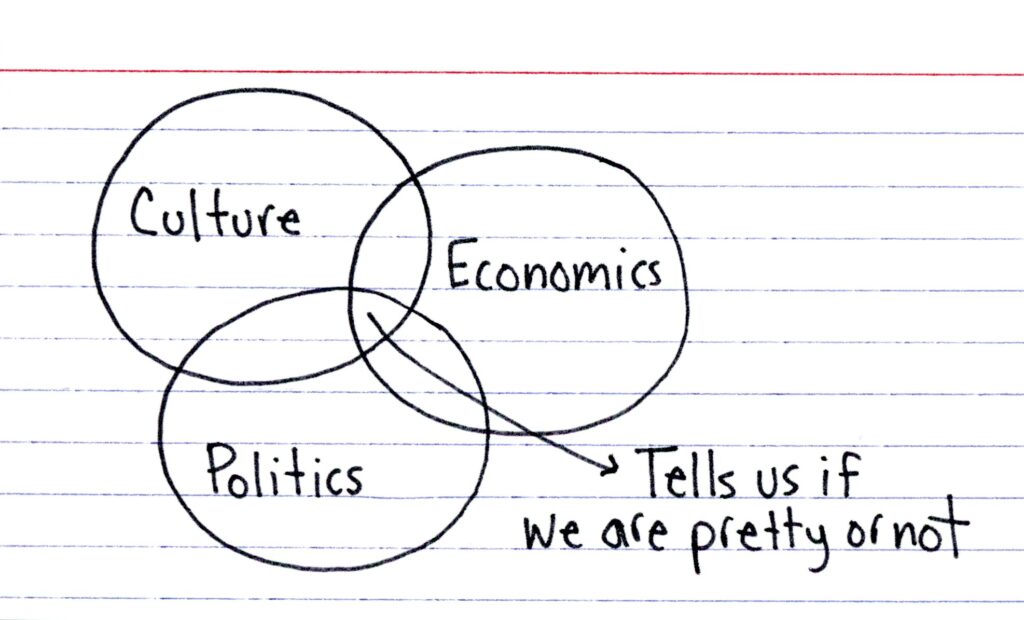 Culture
Economics
Politics
Tells us if
we are pretty or not